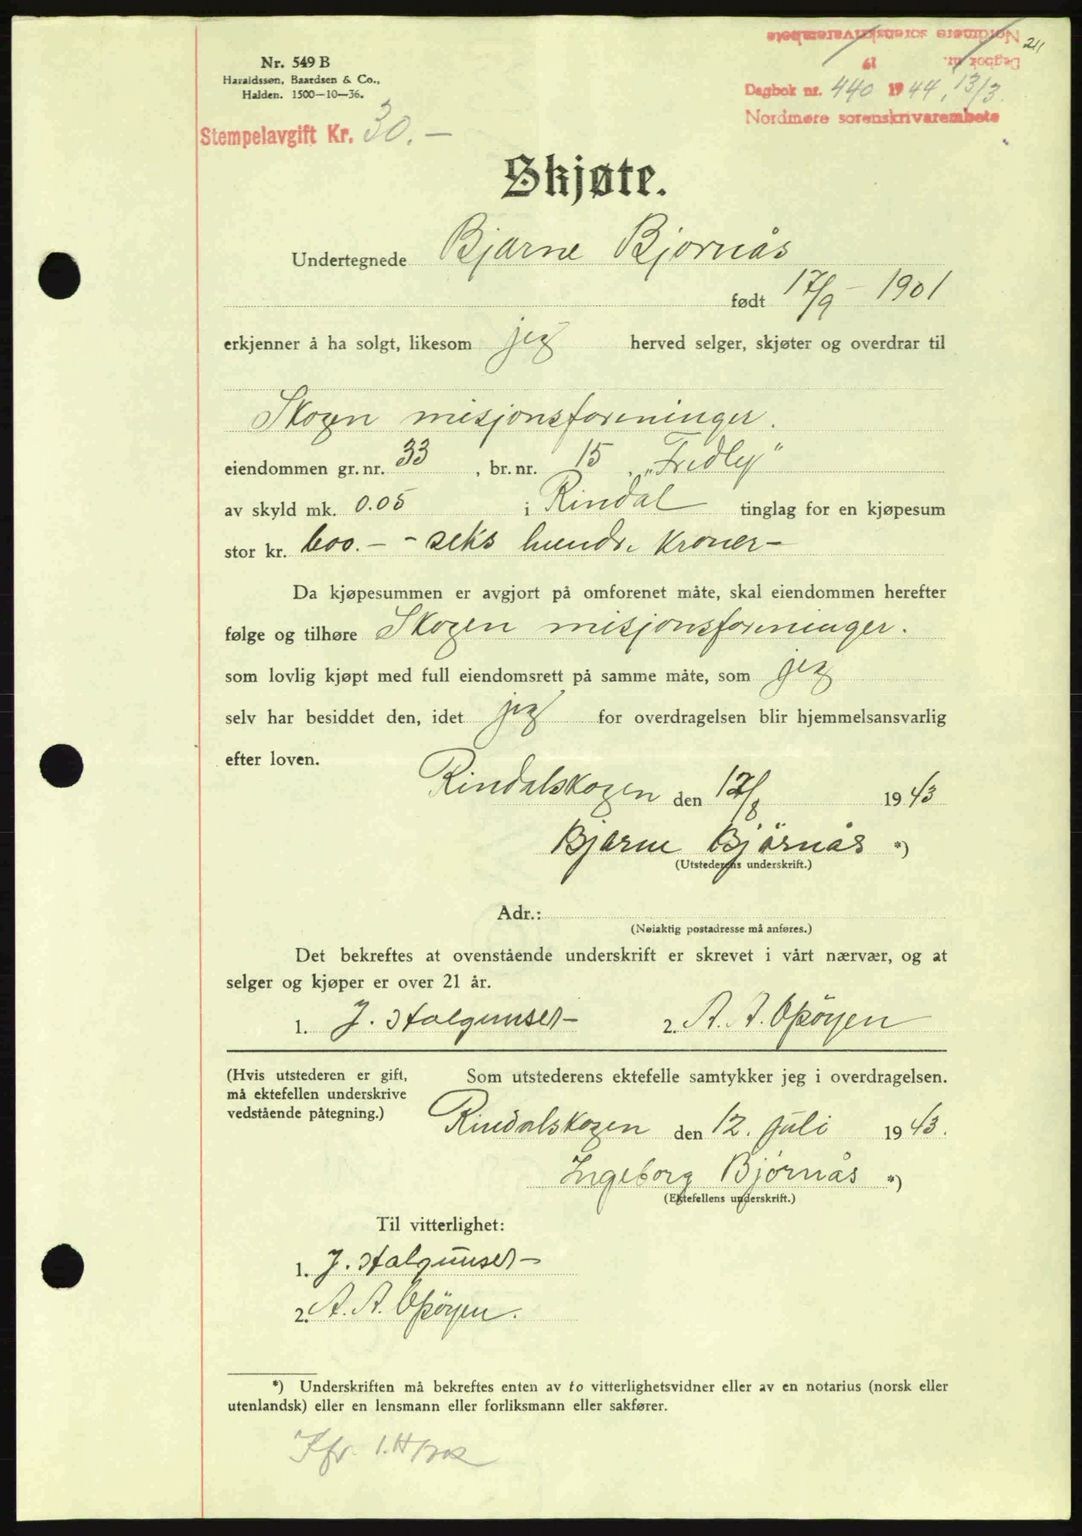 Nordmøre sorenskrivarembete
Dagbok nr. 19
211
Nr. 549 B
Haraldssøn, Baardsen & Co.,
Halden. 1500—10—36.
Dagbok nr. 440 1944, 13/3.
Nordmøre sorenskrivarembete
Stempelavgift Kr. 30.-
Skjøte.
Undertegnede Bjarne Bjørnås
født 17/9 - 1901
erkjenner å ha solgt, likesom jeg herved selger, skjøter og overdrar til
Skogen misjonsforeninger.
eiendommen gr. nr. 33, br. nr. 15, "Fredly"
av skyld mk. 0.05 i Rindal tinglag for en kjøpesum
stor kr. 600.- - seks hundre kroner-
Da kjøpesummen er avgjort på omforenet måte, skal eiendommen herefter
følge og tilhøre Skogen misjonsforeninger.
som lovlig kjøpt med full eiendomsrett på samme måte, som jeg
selv har besiddet den, idet jeg for overdragelsen blir hjemmelsansvarlig
efter loven.
Rindalskogen den 12/8 1943
Bjarne Bjørnås *)
(Utstederens underskrift.)
Adr.:
(Nøiaktig postadresse må anføres.)
Det bekreftes at ovenstående underskrift er skrevet i vårt nærvær, og at
selger og kjøper er over 21 år.
1. J. Halgunset 2. A. A. Opøyen
(Hvis utstederen er gift, Som utstederens ektefelle samtykker jeg i overdragelsen.
må ektefellen underskrive
vedstående påtegning.)
Rindalskogen den 12. juli 1943.
Ingeborg Bjørnås *)
(Ektefellens underskrift.)
Til vitterlighet:
1. J. Halgunset
2. A. A. Opøyen.
*) Underskriften må bekreftes enten av to vitterlighetsvidner eller av en notarius (norsk eller
utenlandsk) eller en lensmann eller forliksmann eller sakfører.